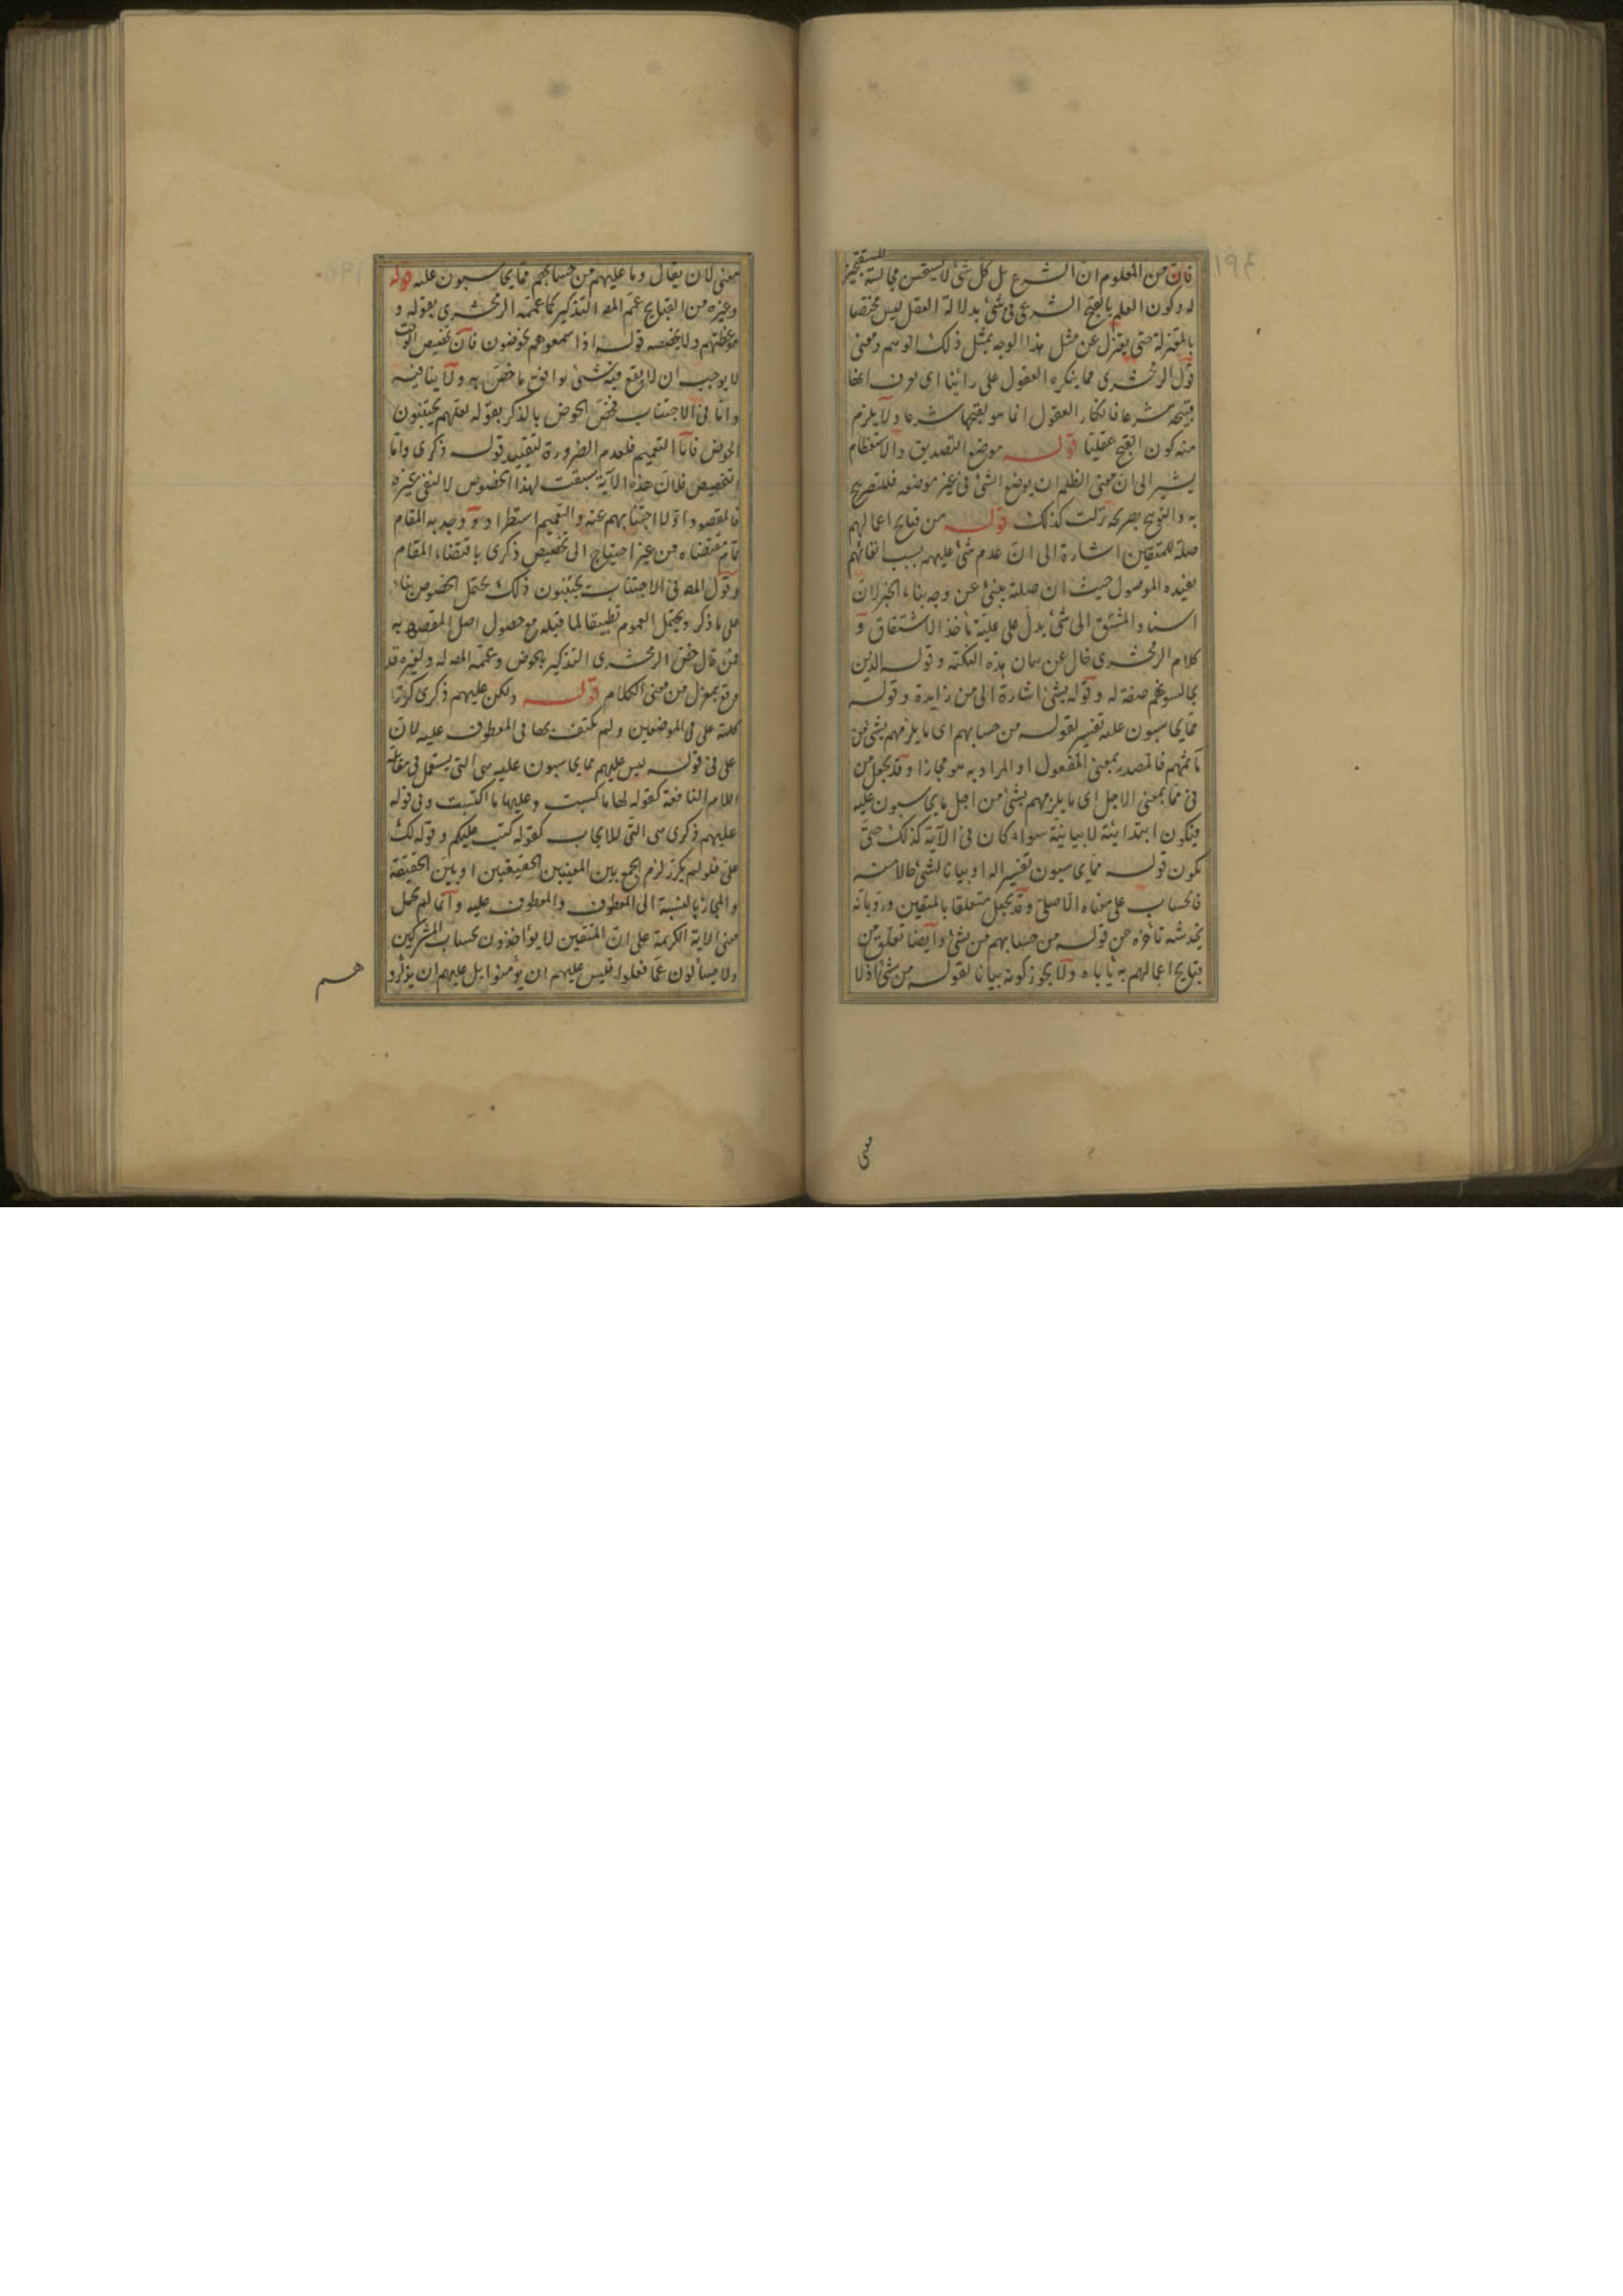 فان من المعلوم ان الشرع بل كل شئ لا يستحسن مجالسة
المستقبح
له وكون العلم بالقبح الشرعى فى شئ بدلالة العقل ليس مختصا
بالمعتزلة حتى يعتزل عن مثل هذا الوجه بمثل ذلك التوهم ومعنى
قول الزمخشرى مما ينكره العقول على رائنا اى يعرف انها
قبيحة شرعا فانكار العقول انما هو لقبحها شرعا ولا يلزم
منه كون القبح عقليا قوله موضع التصديق والاستعظام
يشير الى ان معنى الظلم ان يوضع الشئ فى غير موضعه فللتصريح
به والتوبيخ بصريحه نزلت كذلك قوله من قبايح اعمالهم
صلة للمتقين اشارة الى ان عدم شئ عليهم بسبب اتقائهم
يفيده الموصول حيث ان صلته ينبئ عن وجه بناء الخبر لان
اسناد المشتق الى شئ يدل على علية مأخذ الاشتقاق و
كلام الزمخشرى خال عن بيان هذه النكتة وقوله الذين
يجالسونهم صفة له وقوله بشئ اشارة الى من زايدة وقوله
مما يحاسبون عليه تفسير لقوله من حسابهم اى ما يلزمهم بشئ من
مآثمهم فالمصدر بمعنى المفعول او المراد به هو مجازا وقد يجعل من
فى مما بمعنى الاجل اى ما يلزمهم بشئ من اجل ما يحاسبون عليه
فيكون ابتدائية لا بيانية سواء كان فى الآية كذلك حتى
يكون قوله مما يحاسبون تفسيرا له او بيانا لشئ حالا منه
فالحساب على معناه الاصلى وقد يجعل متعلقا بالمتقين ورد بانه
يخدشه تأخره عن قوله من حسابهم من شئ وايضا تعلق من
قبايح اعمالهم به ياباه ولا يجوز كونه بيانا لقوله من شئ اذ لا
معنى
معنى لان يقال وما عليهم من حسابهم مما يحاسبون عليه قوله
وغيره من القبايح عمم المص التذكير كما عممه الزمخشرى بقوله و
موعظتهم ولا يخصصه قوله اذا سمعوهم يخوضون فان تخصيص الوقت
لا يوجب ان لا يقع فيه شئ يوافق ما خص به ولا ينافيه
واما فى الاجتناب فخص الخوض بالذكر بقوله لعلهم يجتنبون
الخوض فاما التعميم فلعدم الضرورة لتقييد قوله ذكرى واما
التخصيص فلان هذه الآية سيقت لهذا الخصوص لا لنفى غيره
فالمقصود اولا اجتنابهم عنه والتعميم استطراد ووجد به المقام
تمام مقتضاه من غير احتياج الى تخصيص ذكرى باقتضاء المقام
وقول المص فى الاجتناب يجتنبون ذلك يحتمل الخصوص بناء
على ما ذكر ويحتمل العموم تطبيقا لما قبله مع حصول اصل المقص به
فمن قال خص الزمخشرى التذكير بالخوض وعممه المص له ولغيره قد
وقع بمعزل من معنى الكلام قوله ولكن عليهم ذكرى كررنا
كلمة على فى الموضعين ولم يكتف بها فى المعطوف عليه لان
على فى قوله ليس عليهم مما يحاسبون عليه هى التى يستعمل فى مقابلة
اللام النافعة كقوله لها ما كسبت وعليها ما اكتسبت وفى قوله
عليهم ذكرى هى التى للايجاب كقوله كتب عليكم وقوله لك
على فلو لم يكرر لزم الجمع بين المعنيين الحقيقيين او بين الحقيقة
والمجاز بالنسبة الى المعطوف والمعطوف عليه وانما لم يحمل
معنى الآية الكريمة على ان المتقين لا يؤاخذون بحساب المشركين
ولا يسألون عما فعلوه فليس عليهم ان يؤمنوا بل عليهم ان يذكرو
هم